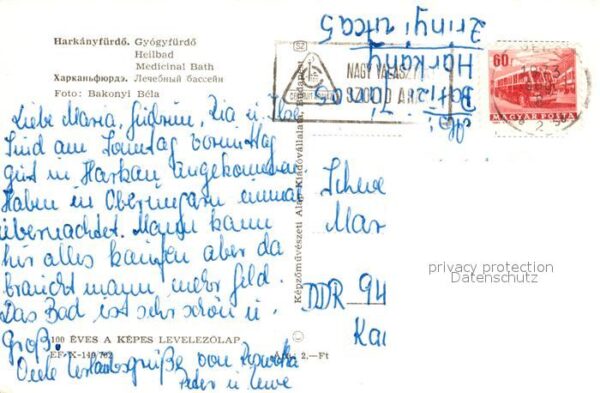 Harkányfürdő. Gyógyfürdő
Heilbad
Medicinal Bath
Харканьфюрдэ. Лечебный бассейн
Foto: Bakonyi Béla
Liebe Maria, Gudrun, Pia u.
Sind am Sonntag vormittag
gut in Harkan angekommen.
Haben in Oberungarn einmal
übernachtet. Mann kann
hir alles kaufen aber da
braucht mann mehr Geld.
Das Bad ist sehr schön u.
Groß.
Viele Urlaubsgrüße von
Peter u Uwe
100 ÉVES A KÉPES LEVELEZŐLAP
Ára: 2,–Ft
Képzőművészeti Alap Kiadóvállalata, Budapest
NAGY VÁLASZT
Harkány
Zrinyi utca 5
60
MAGYAR POSTA
Mar
DDR 94
Kai
privacy protection
Datenschutz